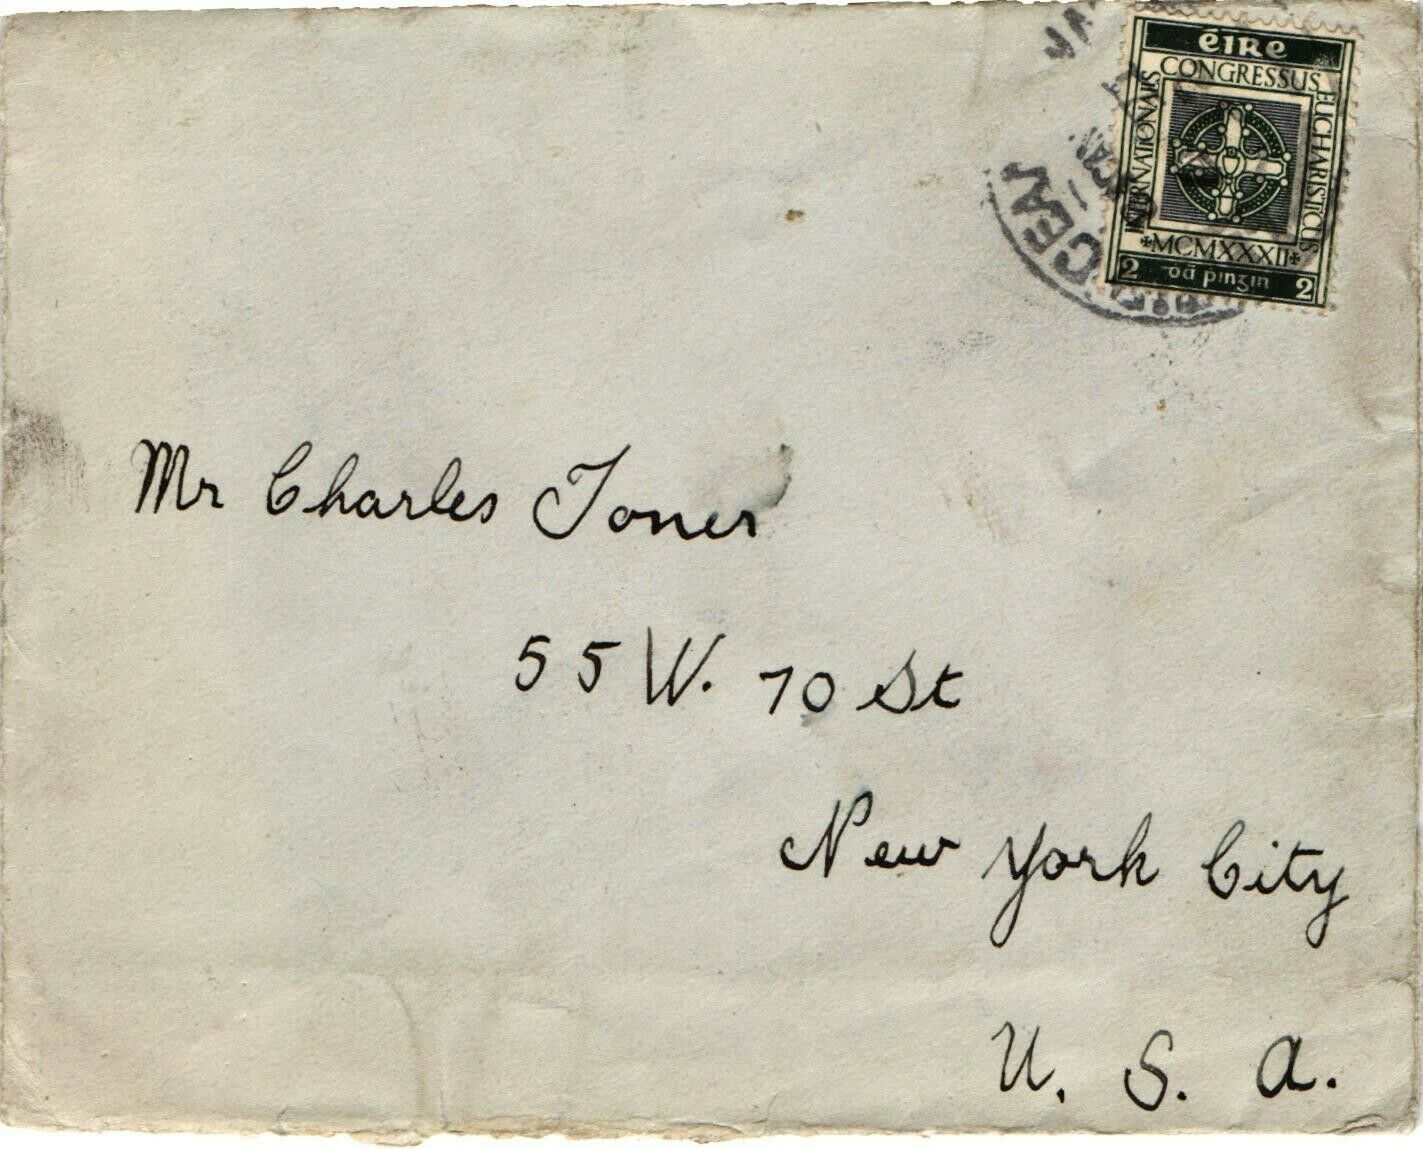 éire
CONGRESSUS
INTERNATIONALIS
EUCHARISTICUS
*MCMXXXII*
2 ꝺá pinᵹin 2
Mr Charles Toner
55 W. 70 St
New York City
U. S. A.